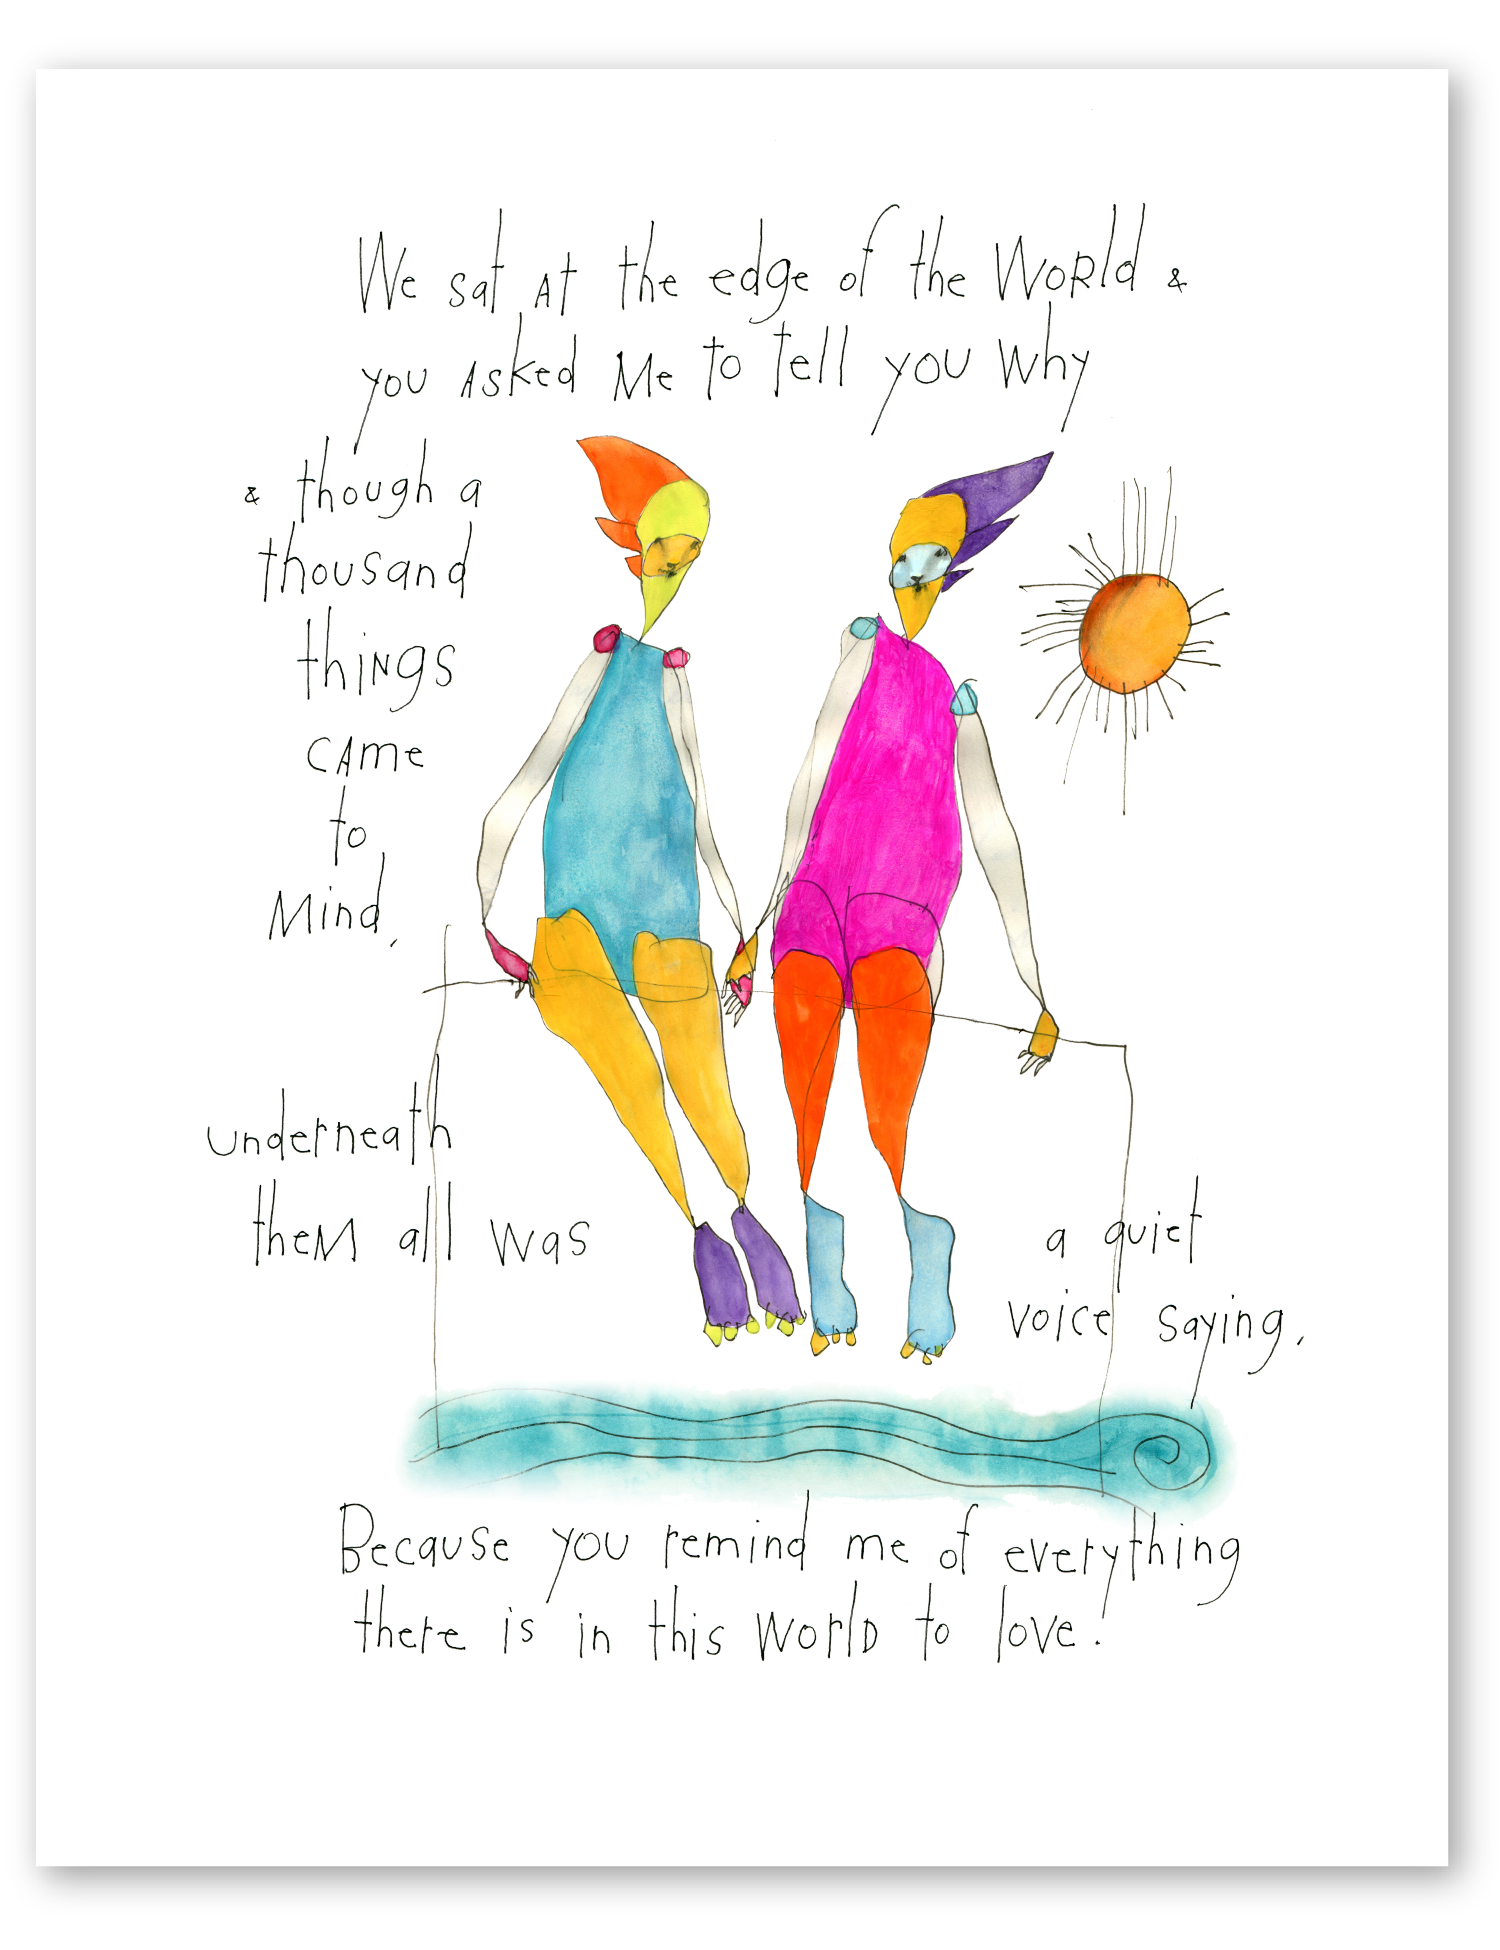 We sat at the edge of the World &
you asked me to tell you why
& though a
thousand
things
came
to
mind,
underneath
them all was
a quiet
voice saying,
Because you remind me of everything
there is in this world to love.